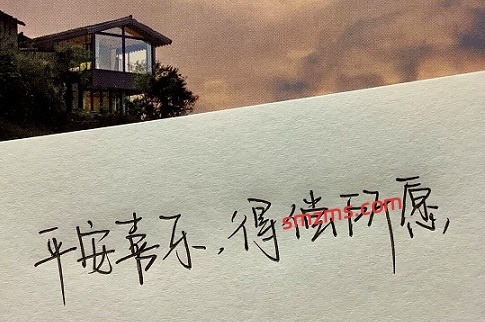 平安喜乐，得偿所愿，
smzms.com